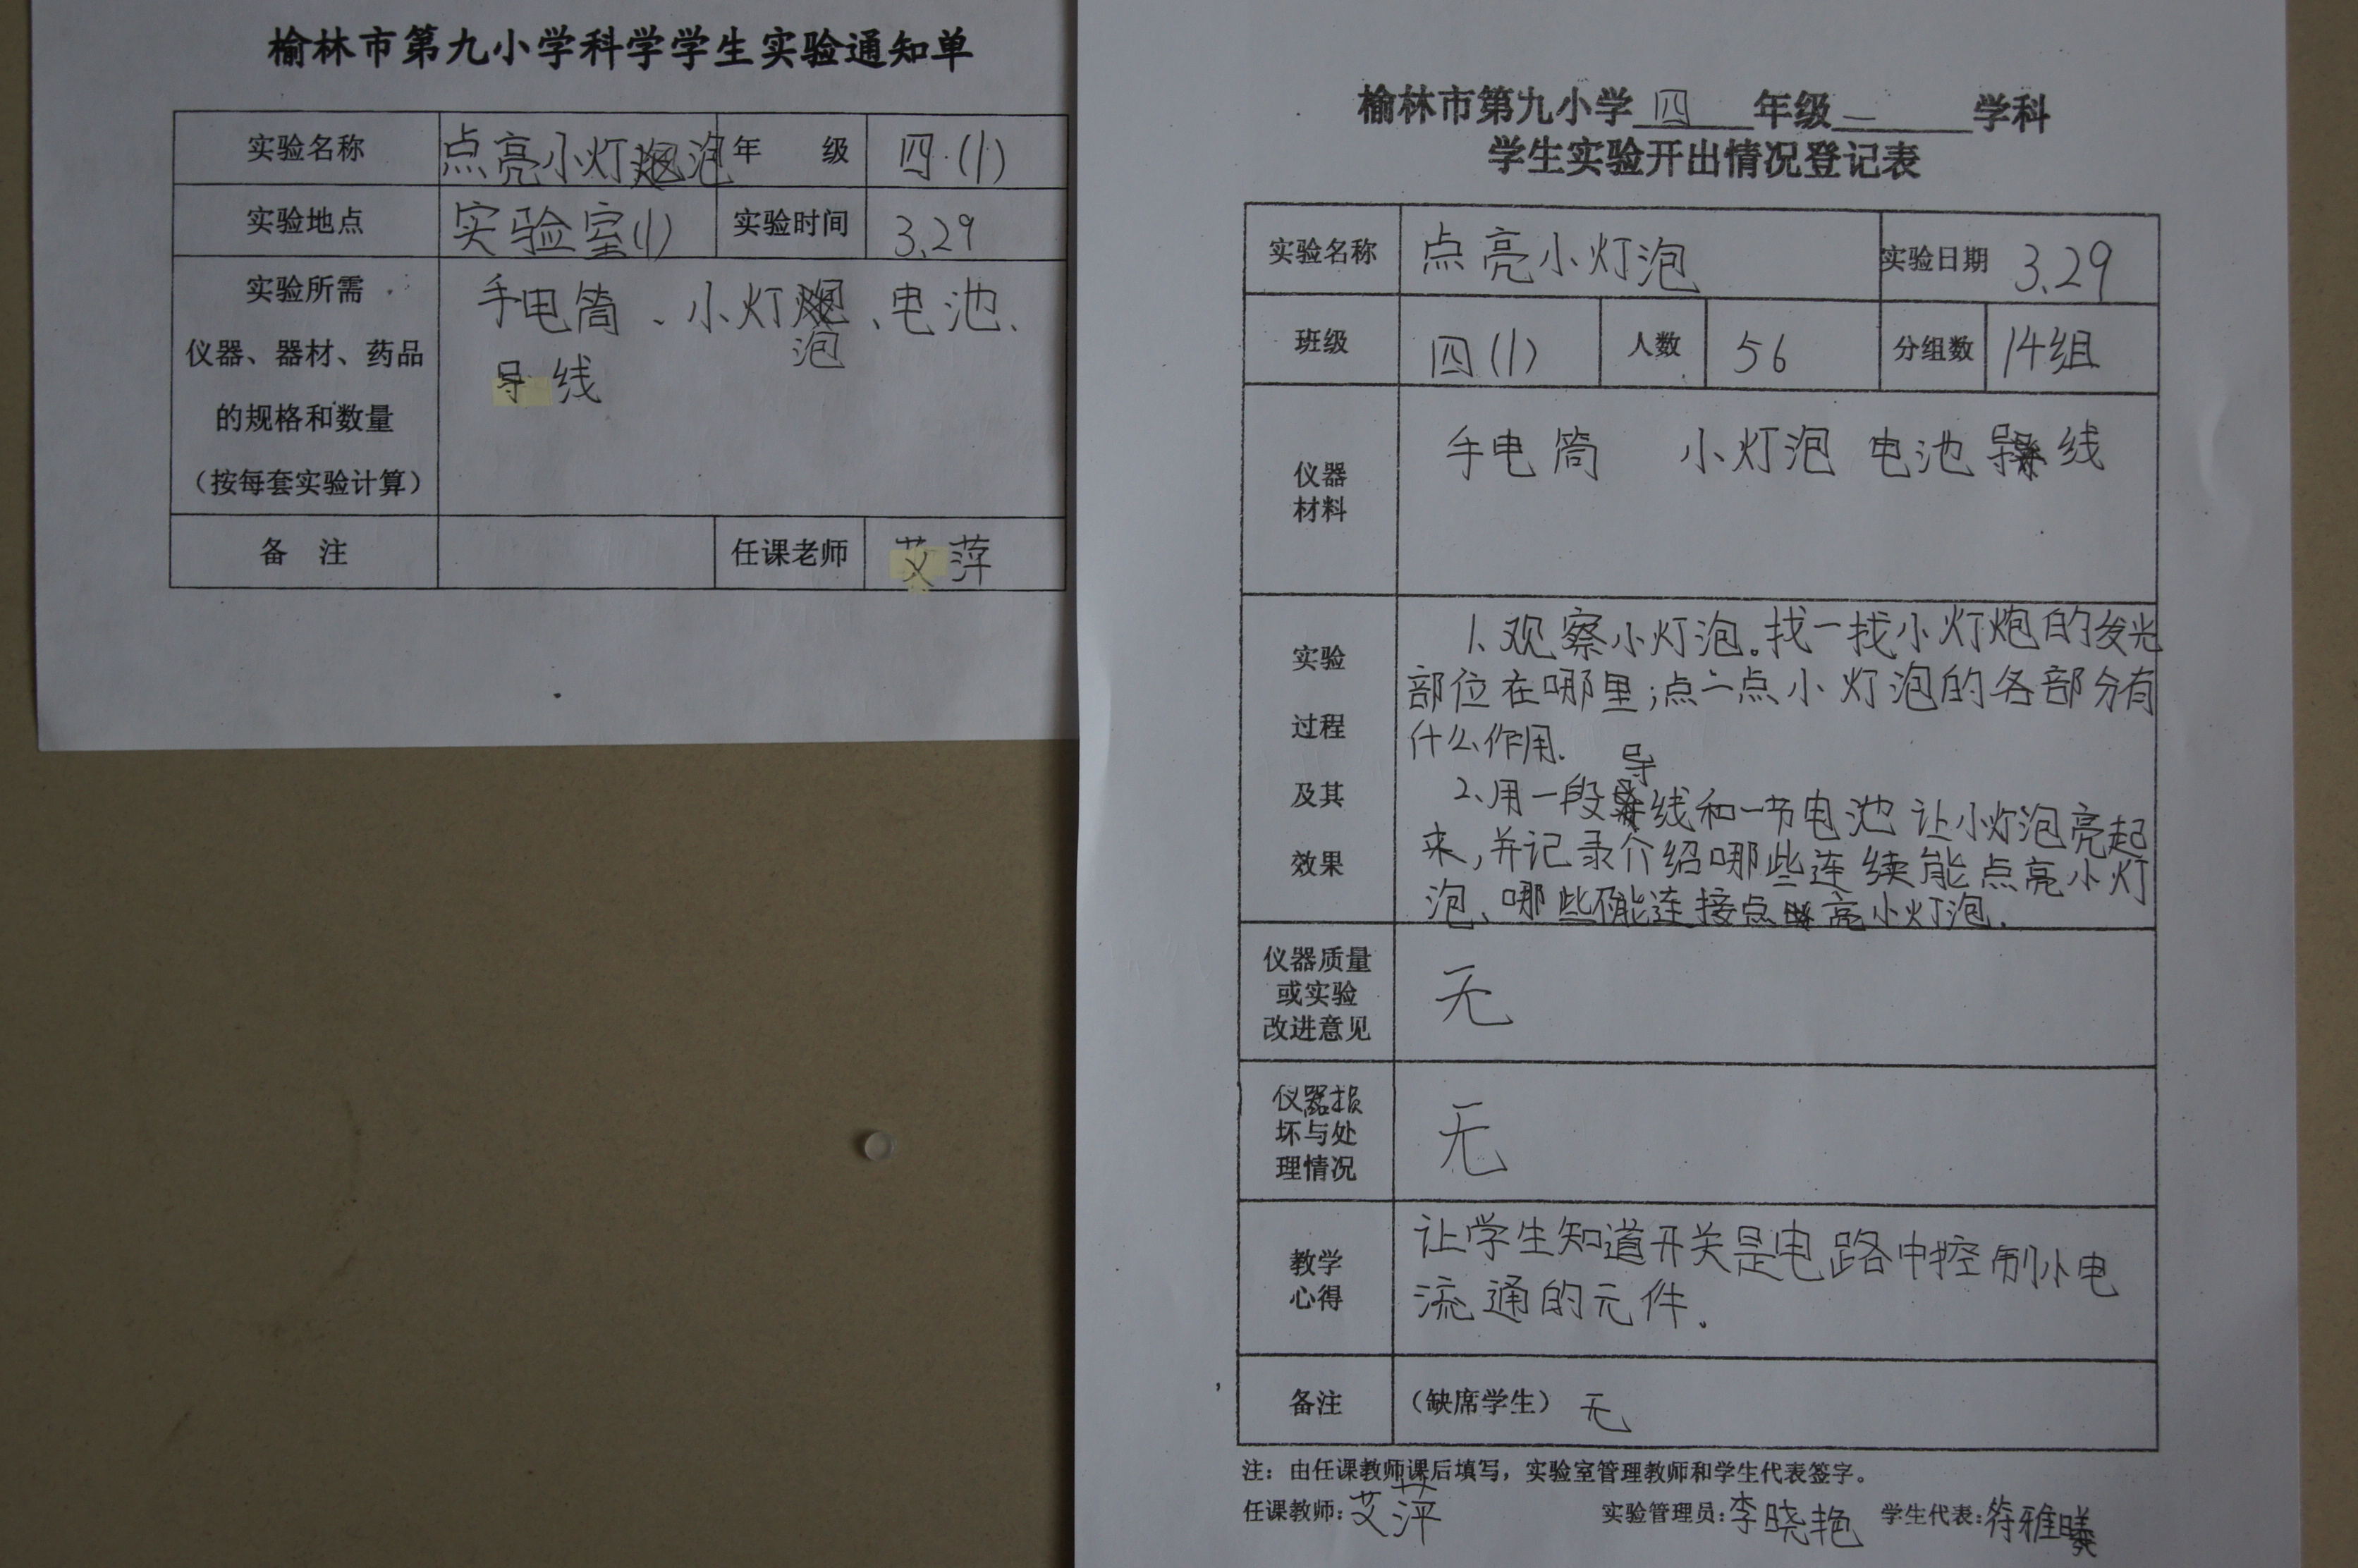 榆林市第九小学科学学生实验通知单
实验名称 点亮小灯泡 年 级 四(1)
实验地点 实验室(1) 实验时间 3.29
实验所需
仪器、器材、药品
的规格和数量
（按每套实验计算）
手电筒、小灯泡、电池、
导线
备 注 任课老师 艾萍
榆林市第九小学 四 年级 一 学科
学生实验开出情况登记表
实验名称 点亮小灯泡 实验日期 3.29
班级 四(1) 人数 56 分组数 14组
仪器
材料
手电筒 小灯泡 电池 导线
实验
过程
及其
效果
1、观察小灯泡。找一找小灯炮的发光
部位在哪里;点一点小灯泡的各部分有
什么作用.
2、用一段导线和一节电池让小灯泡亮起
来,并记录介绍哪些连续能点亮小灯
泡、哪些不能连接点亮小灯泡.
仪器质量
或实验
改进意见
无
仪器损
坏与处
理情况
无
教学
心得
让学生知道开关是电路中控制小电
流通的元件.
备注 （缺席学生） 无
注：由任课教师课后填写，实验室管理教师和学生代表签字。
任课教师: 艾萍 实验管理员: 李晓艳 学生代表: 符雅曦